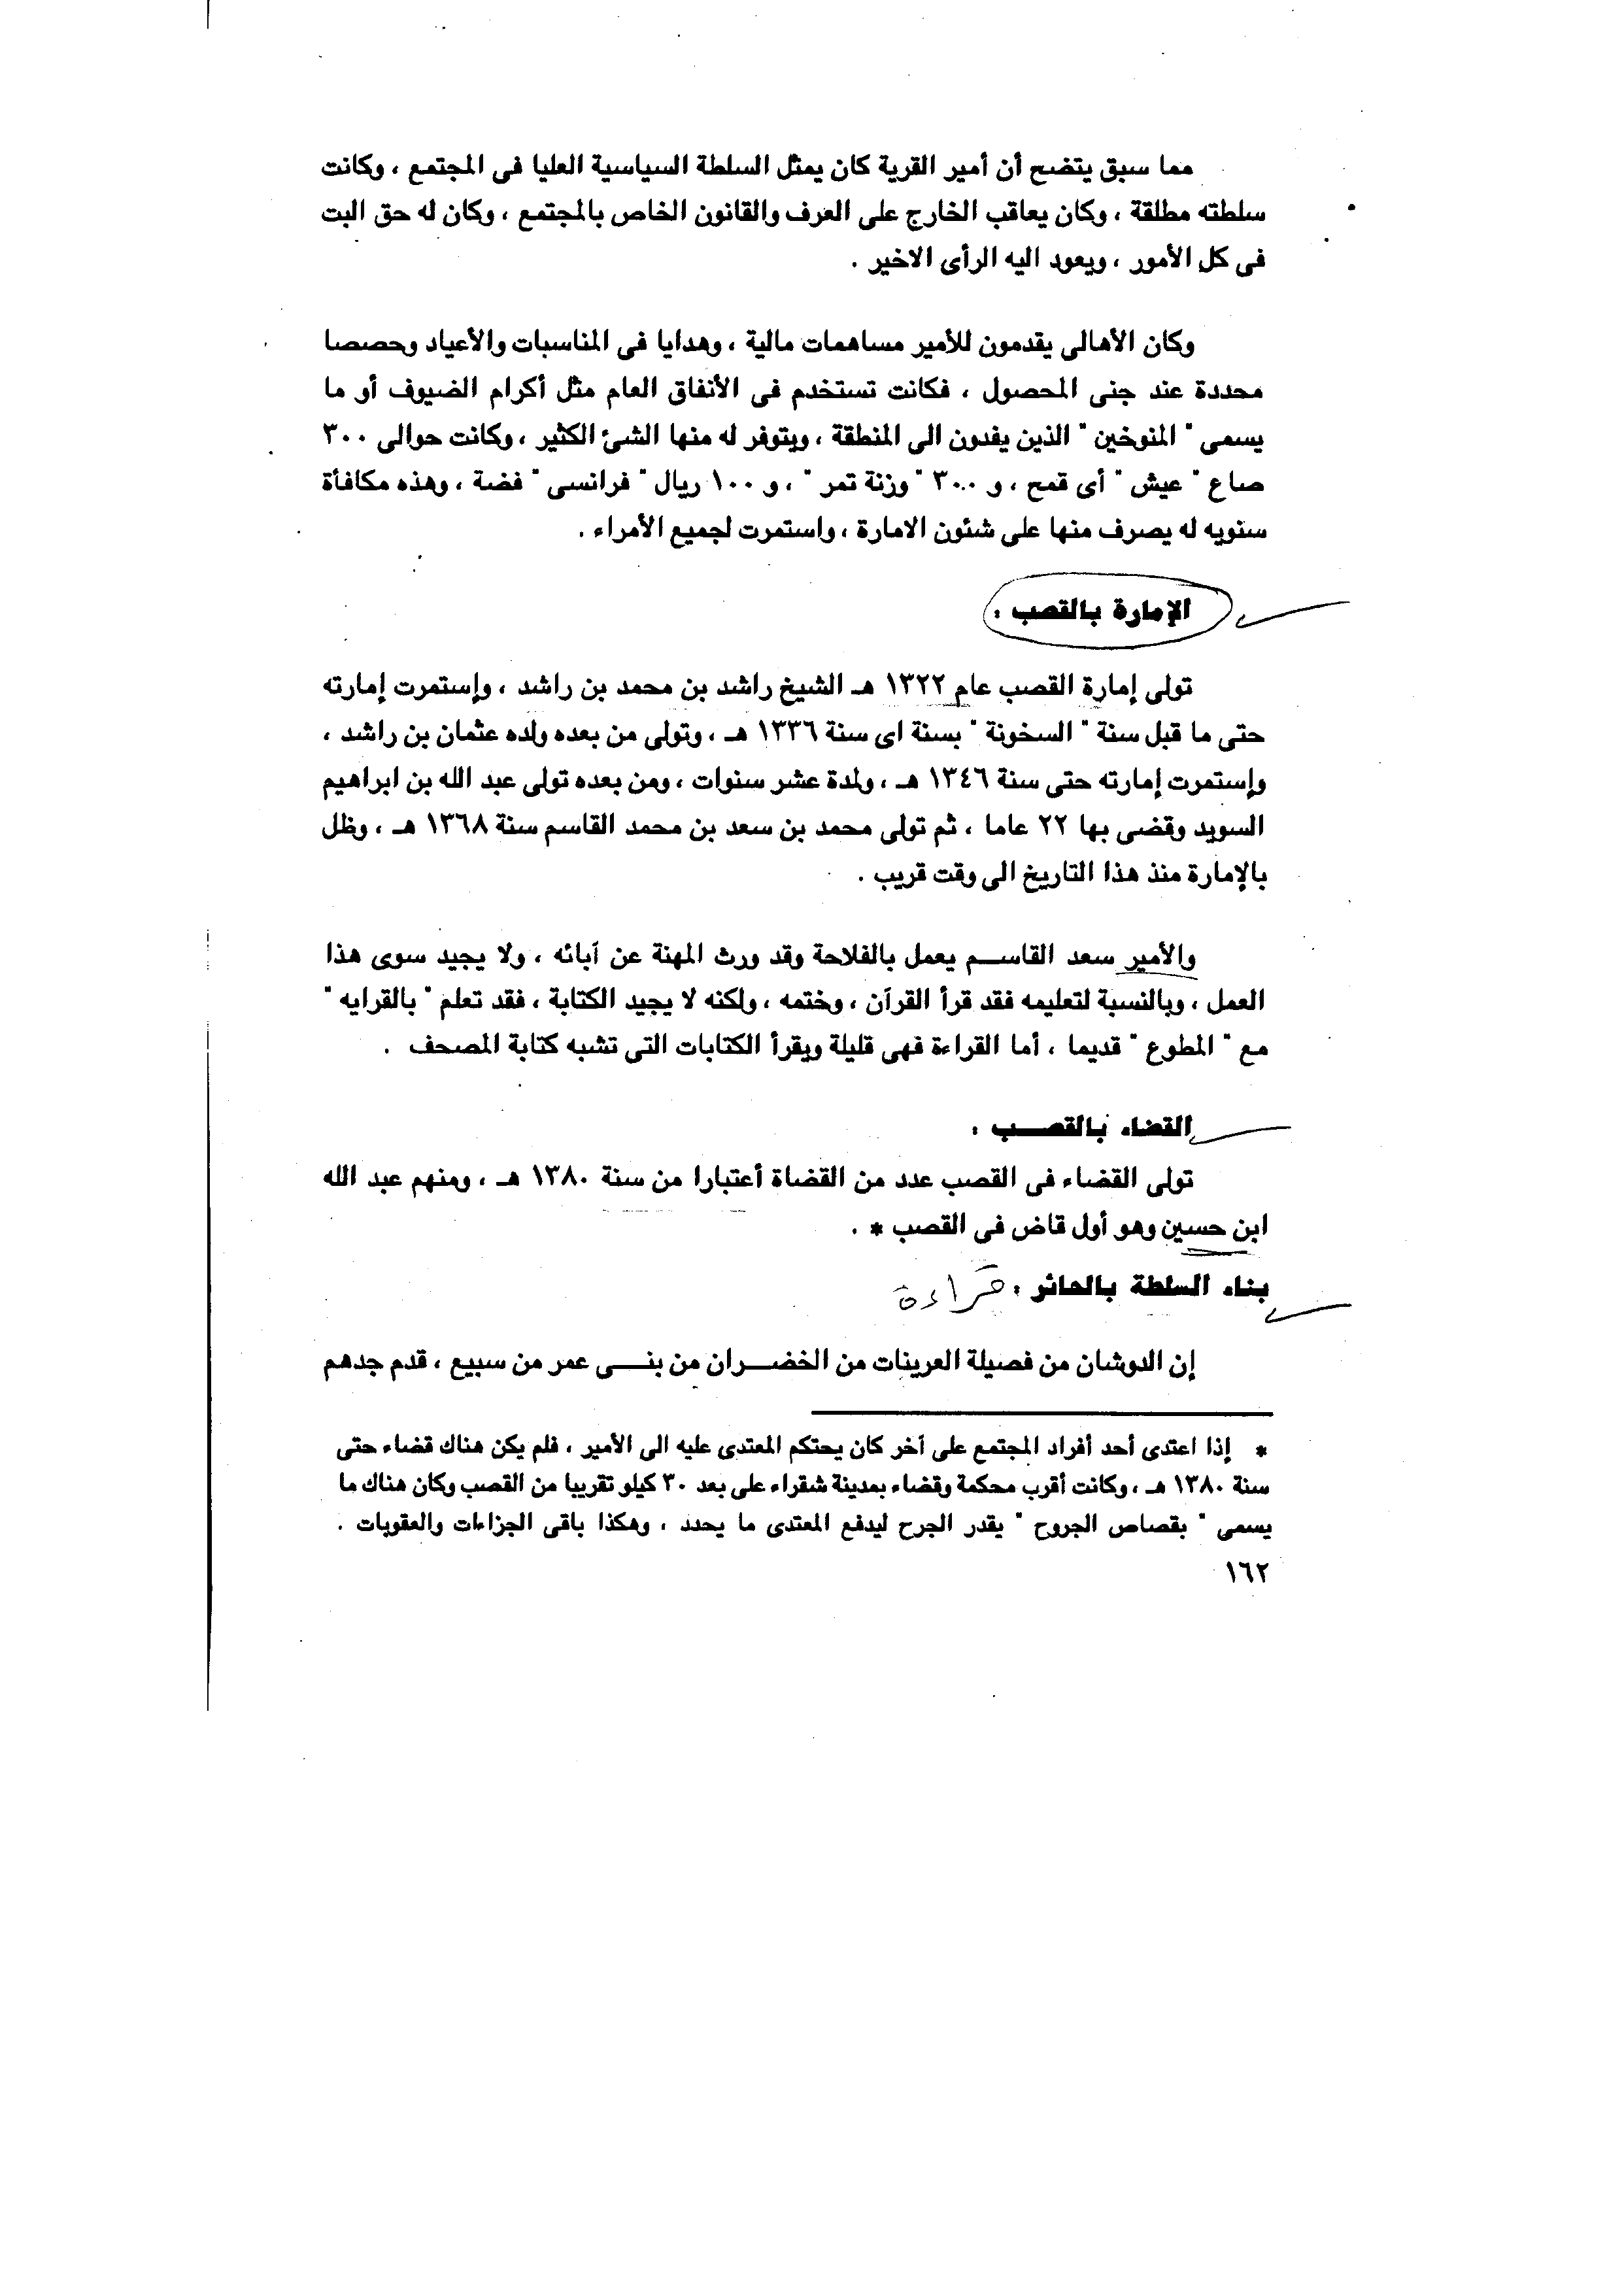 مما سبق يتضح أن أمير القرية كان يمثل السلطة السياسية العليا فى المجتمع ، وكانت
سلطته مطلقة ، وكان يعاقب الخارج على العرف والقانون الخاص بالمجتمع ، وكان له حق البت
فى كل الأمور ، ويعود اليه الرأى الاخير .
وكان الأهالى يقدمون للأمير مساهمات مالية ، وهدايا فى المناسبات والأعياد وحصصا
محددة عند جنى المحصول ، فكانت تستخدم فى الأنفاق العام مثل أكرام الضيوف أو ما
يسمى " المنوخين " الذين يفدون الى المنطقة ، ويتوفر له منها الشئ الكثير ، وكانت حوالى ٣٠٠
صاع " عيش " أى قمح ، و ٣٠٠٠ " وزنة تمر " ، و ١٠٠ ريال " فرانسى " فضة ، وهذه مكافأة
سنويه له يصرف منها على شئون الامارة ، واستمرت لجميع الأمراء .
الإمارة بالقصب :
تولى إمارة القصب عام ١٣٢٢ هـ الشيخ راشد بن محمد بن راشد ، وإستمرت إمارته
حتى ما قبل سنة " السخونة " بسنة اى سنة ١٣٣٦ هـ ، وتولى من بعده ولده عثمان بن راشد ،
وإستمرت إمارته حتى سنة ١٣٤٦ هـ ، ولمدة عشر سنوات ، ومن بعده تولى عبد الله بن ابراهيم
السويد وقضى بها ٢٢ عاما ، ثم تولى محمد بن سعد بن محمد القاسم سنة ١٣٦٨ هـ ، وظل
بالإمارة منذ هذا التاريخ الى وقت قريب .
والأمير سعد القاســم يعمل بالفلاحة وقد ورث المهنة عن آبائه ، ولا يجيد سوى هذا
العمل ، وبالنسبة لتعليمه فقد قرأ القرآن ، وختمه ، ولكنه لا يجيد الكتابة ، فقد تعلم " بالقرايه "
مع " المطوع " قديما ، أما القراءة فهى قليلة ويقرأ الكتابات التى تشبه كتابة المصحف .
القضاء بالقصــب :
تولى القضاء فى القصب عدد من القضاة أعتبارا من سنة ١٣٨٠ هـ ، ومنهم عبد الله
ابن حسين وهو أول قاض فى القصب * .
بناء السلطة بالحائر : قراءة
إن الدوشان من فصيلة العرينات من الخضــران من بنــى عمر من سبيع ، قدم جدهم
* إذا اعتدى أحد أفراد المجتمع على آخر كان يحتكم المعتدى عليه الى الأمير ، فلم يكن هناك قضاء حتى
سنة ١٣٨٠ هـ ، وكانت أقرب محكمة وقضاء بمدينة شقراء على بعد ٣٠ كيلو تقريبا من القصب وكان هناك ما
يسمى " بقصاص الجروح " يقدر الجرح ليدفع المعتدى ما يحدد ، وهكذا باقى الجزاءات والعقوبات .
١٦٢